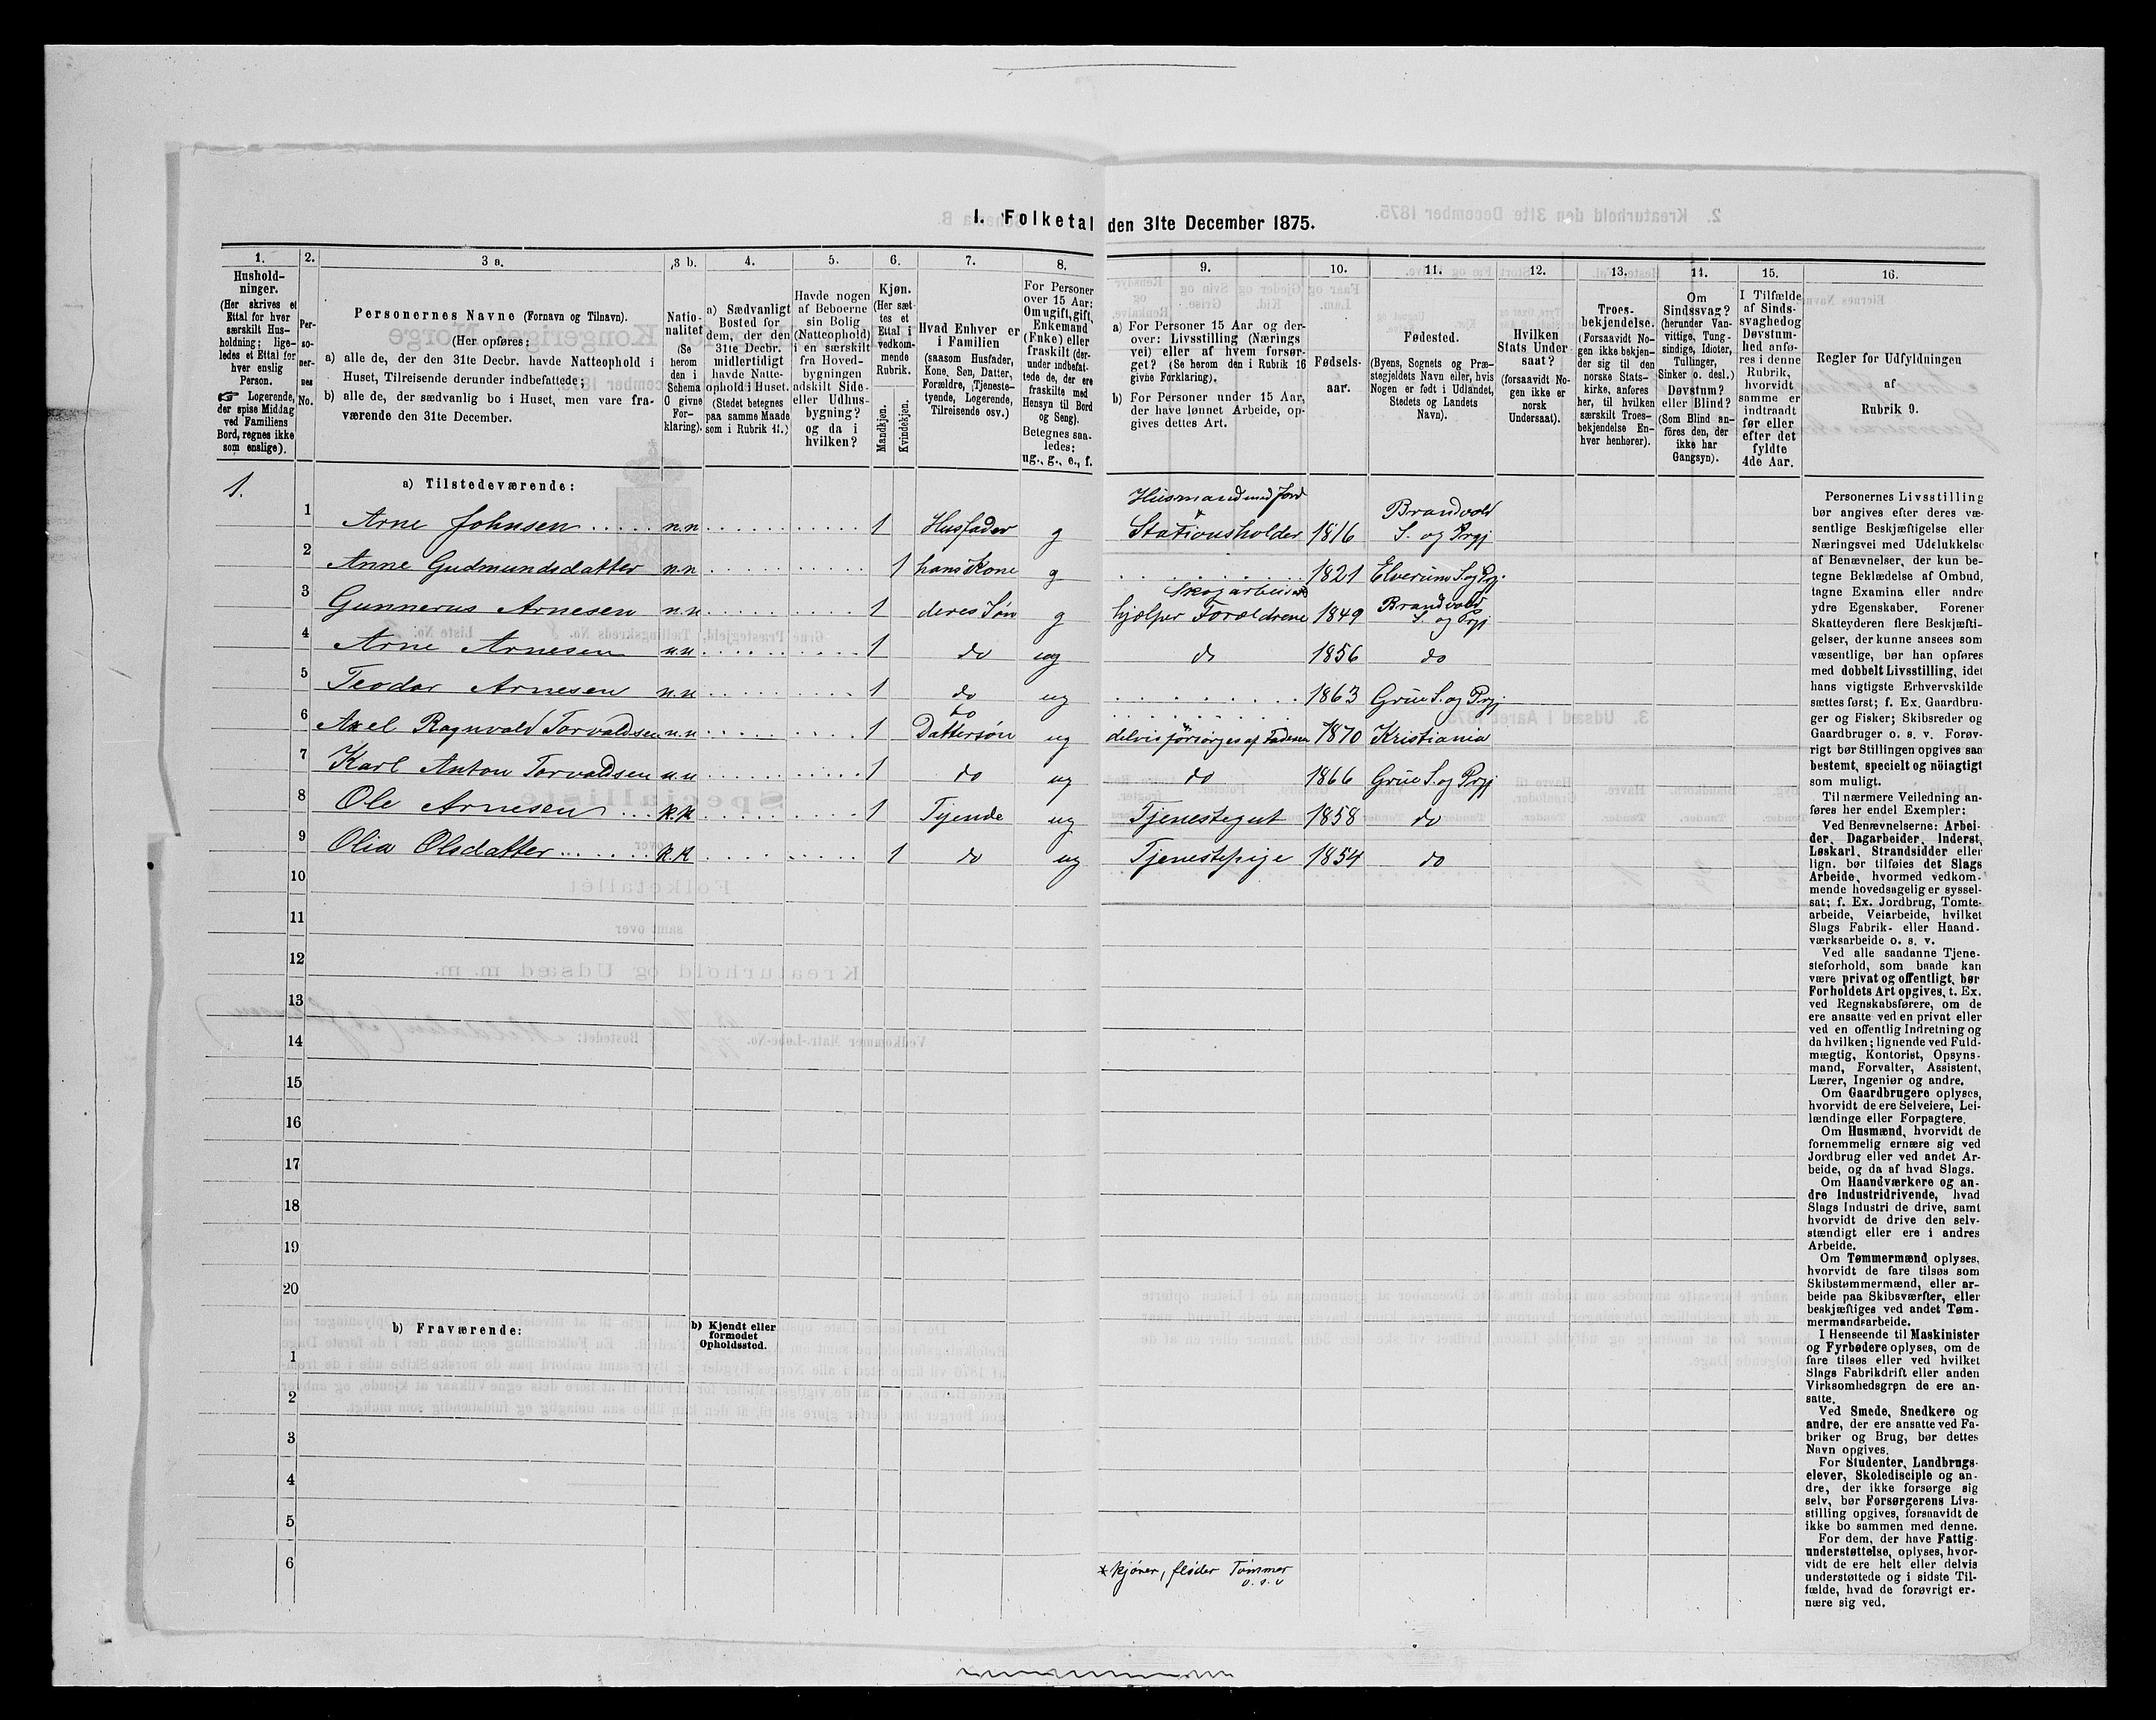 1. Folketal den 31te December 1875.
1.
Hushold-
ninger.
(Her skrives et
Ettal for hver
særskilt Hus-
holdning; lige-
ledes et Ettal for
hver enslig
Person.
☞ Logerende,
der spise Middag
ved Familiens
Bord, regnes ikke
som enslige).
2.
Per-
so-
ner-
nes
No.
3 a.
Personernes Navne (Fornavn og Tilnavn).
(Her opføres:
a) alle de, der den 31te Decbr. havde Natteophold i
Huset, Tilreisende derunder indbefattede;
b) alle de, der sædvanlig bo i Huset, men vare fra-
værende den 31te December.
3 b.
Natio-
nalitet
(Se
herom
den i
Schema
O givne
For-
klaring).
4.
a) Sædvanligt
Bosted for
dem, der den
31te Decbr.
midlertidigt
havde Natte-
ophold i Huset.
(Stedet betegnes
paa samme Maade
som i Rubrik 11.)
5.
Havde nogen
af Beboerne
sin Bolig
(Natteophold)
i en særskilt
fra Hoved-
bygningen
adskilt Side-
eller Udhus-
bygning?
og da i
hvilken?
6.
Kjøn.
(Her sæt-
tes et
Ettal i
vedkom-
mende
Rubrik.
Mandkjøn.
Kvindekjøn.
7.
Hvad Enhver er
i Familien
(saasom Husfader,
Kone, Søn, Datter,
Forældre, Tjeneste-
tyende, Logerende,
Tilreisende osv.)
8.
For Personer
over 15 Aar:
Om ugift, gift,
Enkemand
(Enke) eller
fraskilt (der-
under indbefat-
tede de, der ere
fraskilte med
Hensyn til Bord
og Seng).
Betegnes saa-
ledes:
ug., g., e., f.
9.
a) For Personer 15 Aar og der-
over: Livsstilling (Nærings
vei) eller af hvem forsør-
get? (Se herom den i Rubrik 16
givne Forklaring).
b) For Personer under 15 Aar,
der have lønnet Arbeide, op-
gives dettes Art.
10.
Fødsels-
aar.
11.
Fødested.
(Byens, Sognets og Præ-
stegjeldets Navn eller, hvis
Nogen er født i Udlandet,
Stedets og Landets
Navn).
12.
Hvilken
Stats Under
saat?
(forsaavidt No-
gen ikke er
norsk
Undersaat).
13.
Troes-
bekjendelse.
(Forsaavidt No-
gen ikke bekjen-
der sig til den
norske Stats-
kirke, anføres
her, til hvilken
særskilt Troes-
bekjendelse En-
hver henhører).
14.
Om
Sindssvag?
(herunder Van-
vittige, Tung-
sindige, Idioter,
Tullinger,
Sinker o. desl.)
Døvstum?
eller Blind?
(Som Blind an-
føres den, der
ikke har
Gangsyn).
15.
I Tilfælde
af Sinds-
svaghed og
Døvstum-
hed anfø-
res i denne
Rubrik,
hvorvidt
samme er
indtraadt
før eller
efter det
fyldte
4de Aar.
16.
Regler for Udfyldningen
af
Rubrik 9.
1. a) Tilstedeværende:
1 Arne Johnsen n.n 1 Husfader g Husmand med Jord Stationsholder 1816 Brandvold S. og Prgj
2 Anne Gudmundsdatter n.n 1 hans Kone g 1821 Elverum S. og Prgj.
3 Gunnerus Arnesen n.n 1 deres Søn g Skogarbeider hjælper Forældrene 1849 Brandvold S. og Prgj
4 Arne Arnesen n.n 1 do ug do 1856 do
5 Teodor Arnesen n.n 1 do ug 1863 Grue S. og Prgj
6 Axel Ragnvald Torvaldsen n.n 1 Dattersøn ug delvis forsørges af Faderen 1870 Kristiania
7 Karl Anton Torvaldsen n.n 1 do ug do 1866 Grue S. og Prgj
8 Ole Arnesen k.k 1 Tjende ug Tjenestegut 1858 do
9 Olia Olsdatter k.k 1 do ug Tjenestepige 1854 do
10
11
12
13
14
15
16
17
18
19
20
b) Fraværende:
b) Kjendt eller
formodet
Opholdssted.
1
2
3
4
5
6
* kjører, fløder Tømmer
o. s. v
Personernes Livsstilling
bør angives efter deres væ-
sentlige Beskjæftigelse eller
Næringsvei med Udelukkelse
af Benævnelser, der kun be-
tegne Beklædelse af Ombud,
tagne Examina eller andre
ydre Egenskaber. Forener
Skatteyderen flere Beskjæfti-
gelser, der kunne ansees som
væsentlige, bør han opføres
med dobbelt Livsstilling, idet
hans vigtigste Erhvervskilde
sættes først; f. Ex. Gaardbru-
ger og Fisker; Skibsreder og
Gaardbruger o. s. v. Forøv-
rigt bør Stillingen opgives saa
bestemt, specielt og nöiagtigt
som muligt.
Til nærmere Veiledning an-
føres her endel Exempler:
Ved Benævnelserne: Arbei-
der, Dagarbeider, Inderst,
Løskarl, Strandsidder eller
lign. bør tilføies det Slags
Arbeide, hvormed vedkom-
mende hovedsagelig er syssel-
sat; f. Ex. Jordbrug, Tomte-
arbeide, Veiarbeide, hvilket
Slags Fabrik- eller Haand-
værksarbeide o. s. v.
Ved alle saadanne Tjene-
steforhold, som baade kan
være privat og offentligt, bør
Forholdets Art opgives, t. Ex.
ved Regnskabsførere, om de
ere ansatte ved en privat eller
ved en offentlig Indretning og
da hvilken; lignende ved Fuld-
mægtig, Kontorist, Opsyns-
mand, Forvalter, Assistent,
Lærer, Ingeniør og andre.
Om Gaardbrugere oplyses,
hvorvidt de ere Selveiere, Lei-
lændinge eller Forpagtere.
Om Husmænd, hvorvidt de
fornemmelig ernære sig ved
Jordbrug eller ved andet Ar-
beide, og da af hvad Slags.
Om Haandværkere og an-
dre Industridrivende, hvad
Slags Industri de drive, samt
hvorvidt de drive den selv-
stændigt eller ere i andres
Arbeide.
Om Tømmermænd oplyses,
hvorvidt de fare tilsøs som
Skibstømmermænd, eller ar-
beide paa Skibsværfter, eller
beskjæftiges ved andet Tøm-
mermandsarbeide.
I Henseende til Maskinister
og Fyrbødere oplyses, om de
fare tilsøs eller ved hvilket
Slags Fabrikdrift eller anden
Virksomhedsgren de ere an-
satte.
Ved Smede, Snedkere og
andre, der ere ansatte ved Fa-
briker og Brug, bør dettes
Navn opgives.
For Studenter, Landbrugs-
elever, Skoledisciple og an-
dre, der ikke forsørge sig
selv, bør Forsørgerens Livs-
stilling opgives, forsaavidt de
ikke bo sammen med denne.
For dem, der have Fattig-
understøttelse, oplyses, hvor-
vidt de ere helt eller delvis
understøttede og i sidste Til-
fælde, hvad de forøvrigt er-
nære sig ved.